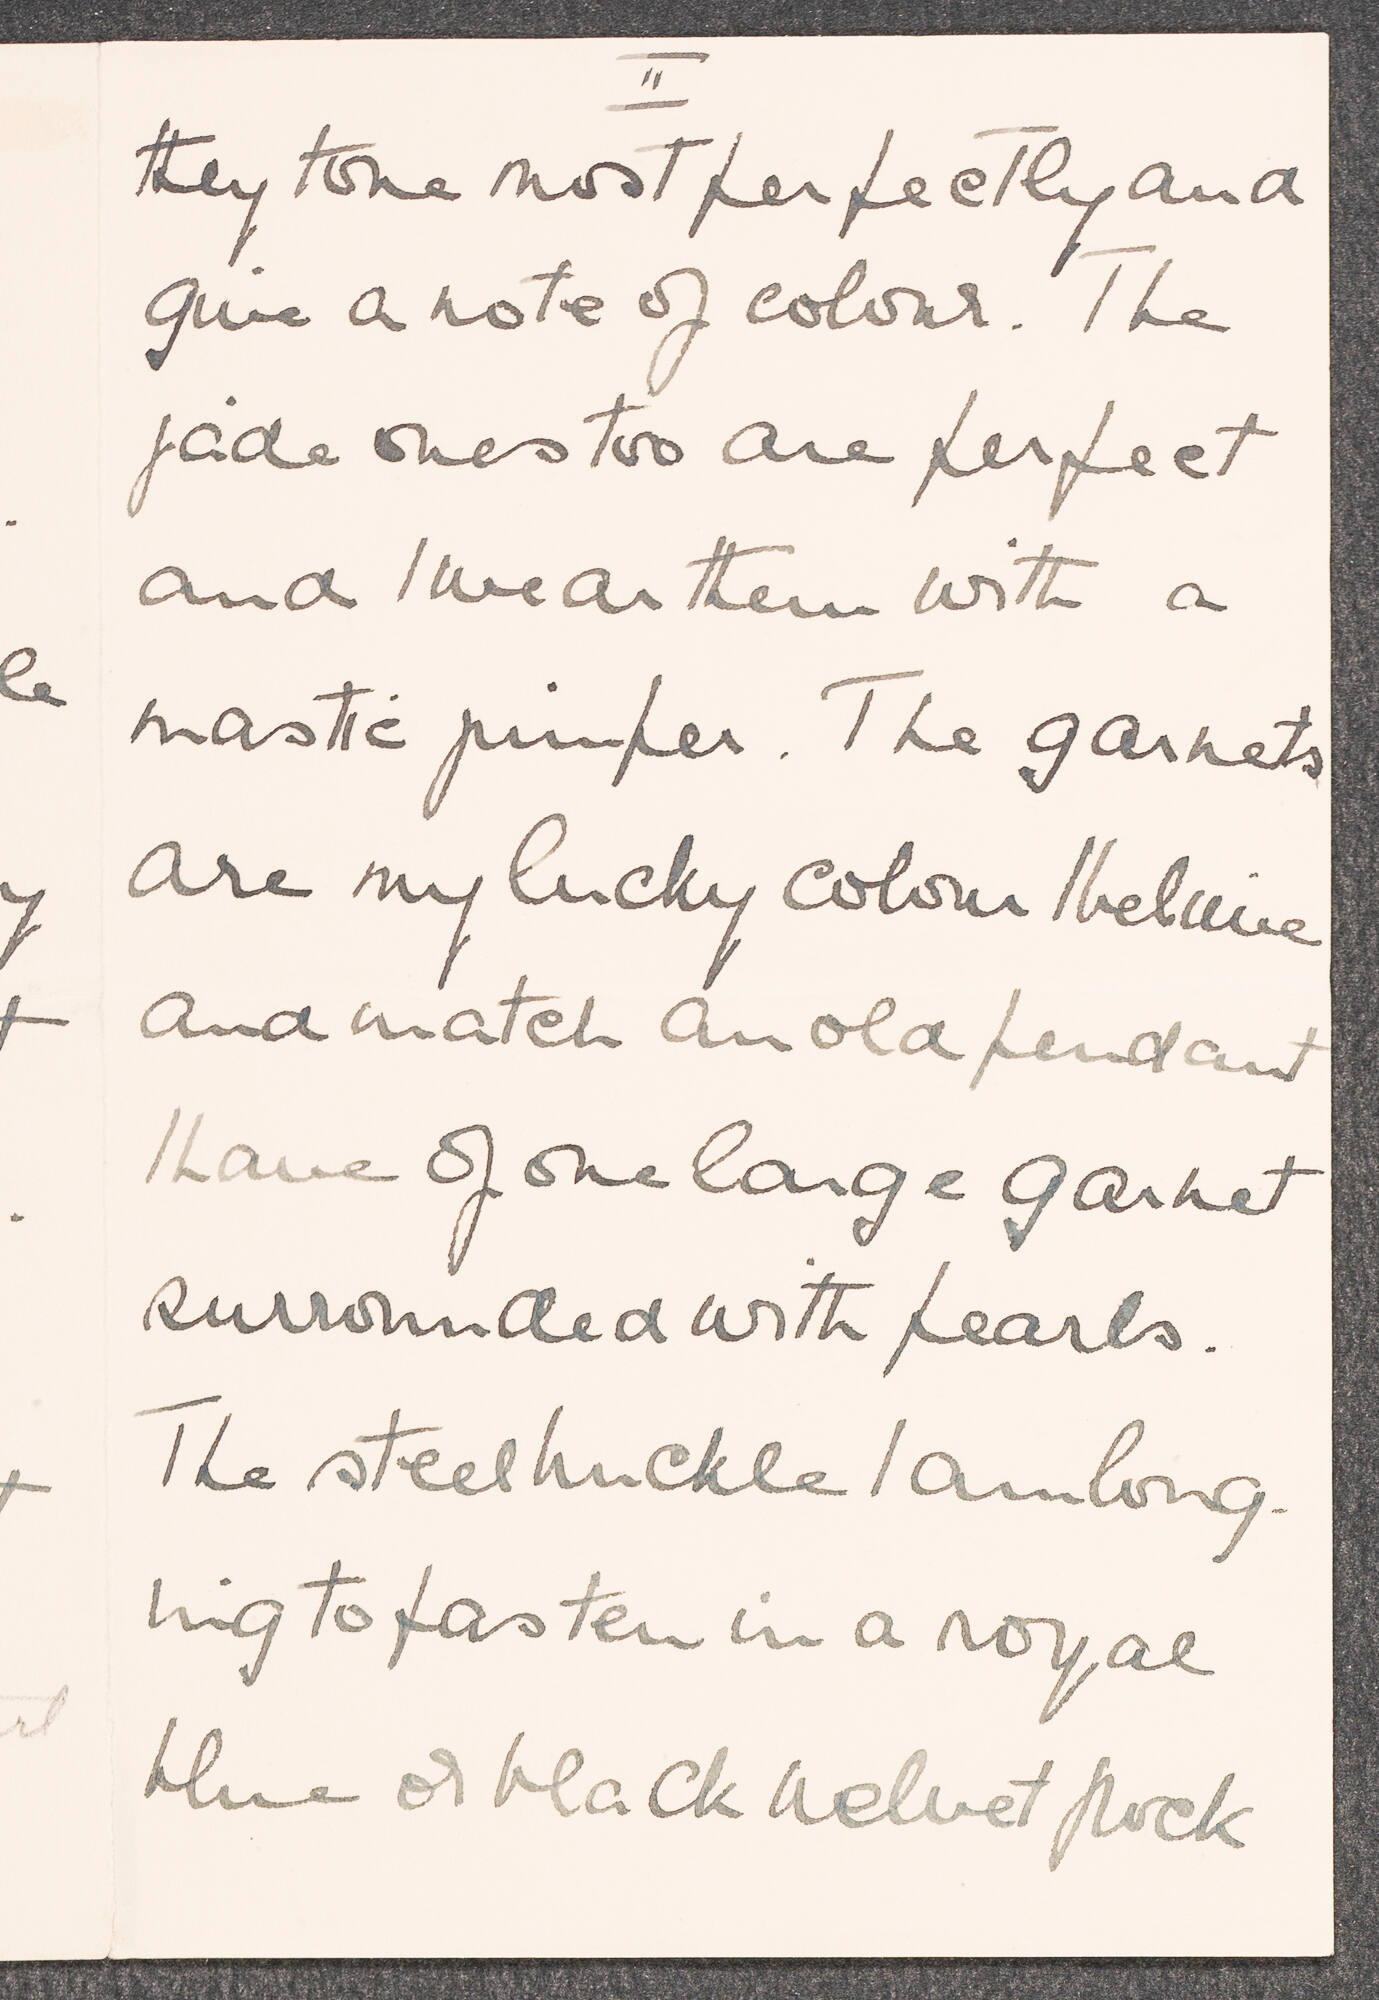 II
they tone most perfectly and
give a note of colour. The
jade ones too are perfect
and I wear them with a
mastic jumper. The garnets
are my lucky colour I believe
and match an old pendant
I have of one large garnet
surrounded with pearls.
The steel buckle I am long-
ing to fasten in a royal
blue or black velvet frock